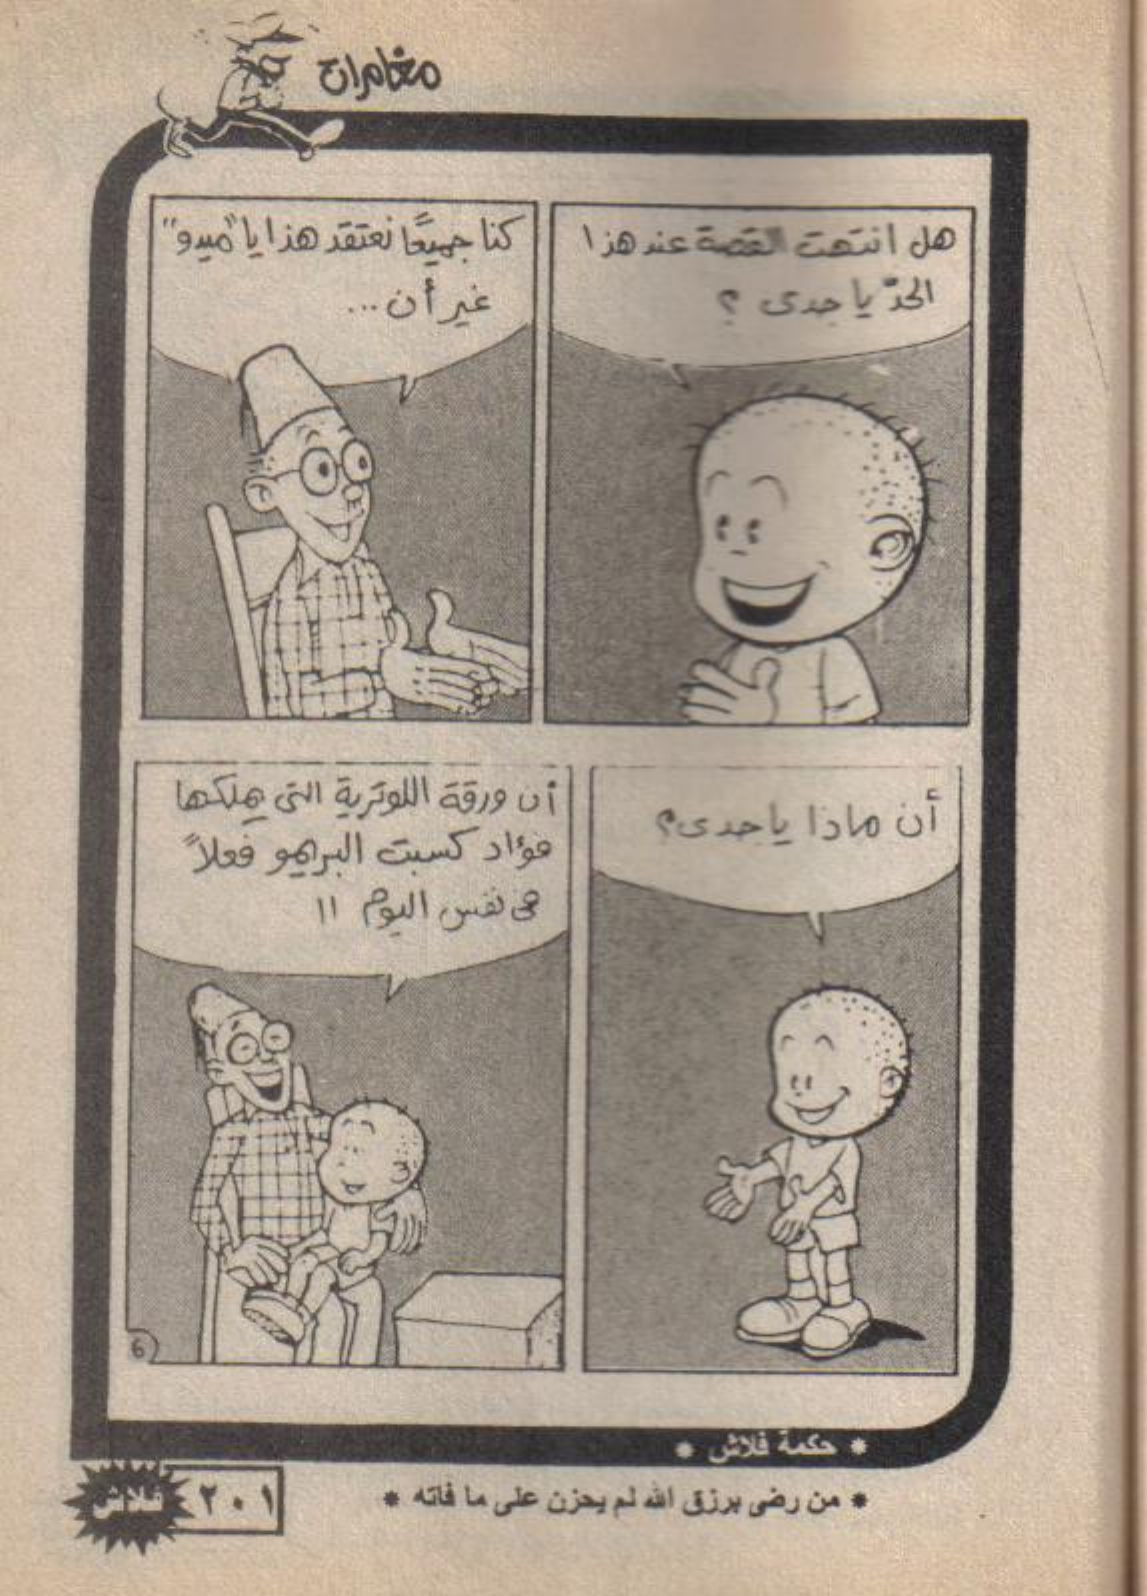 مغامرات
هل انتهت القصة عند هذا
الحدّ يا جدى ؟
كنا جميعًا نعتقد هذا يا "ميدو"
غير أن ...
أن ماذا يا جدى؟
أن ورقة اللوترية التى يملكها
فؤاد كسبت البريمو فعلاً
فى نفس اليوم !!
6
* حكمة فلاش *
* من رضى برزق الله لم يحزن على ما فاته *
٢٠١
فلاش